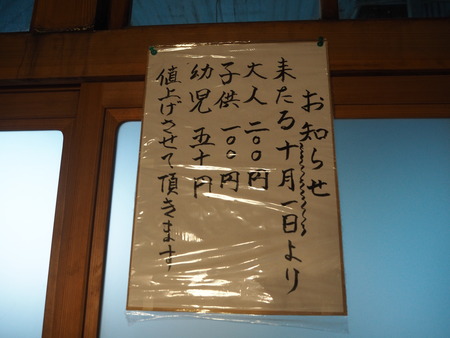 お知らせ
来たる十月一日より
大人 二〇〇円
子供 一〇〇円
幼児 五十円
値上げさせて頂きます。